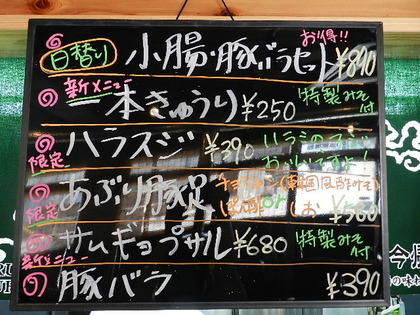 お得!!
日替り 小腸・豚バラセット ¥890
新メニュー
一本きゅうり ¥250 特製みそ付
限定 ハラスジ ¥390
限定 あぶり豚足 チョジャン(韓国風酢みそ)
ぽん酢 しお ¥360
新メニュー サムギョプサル ¥680 特製みそ付
豚バラ ¥390
今
の味わ